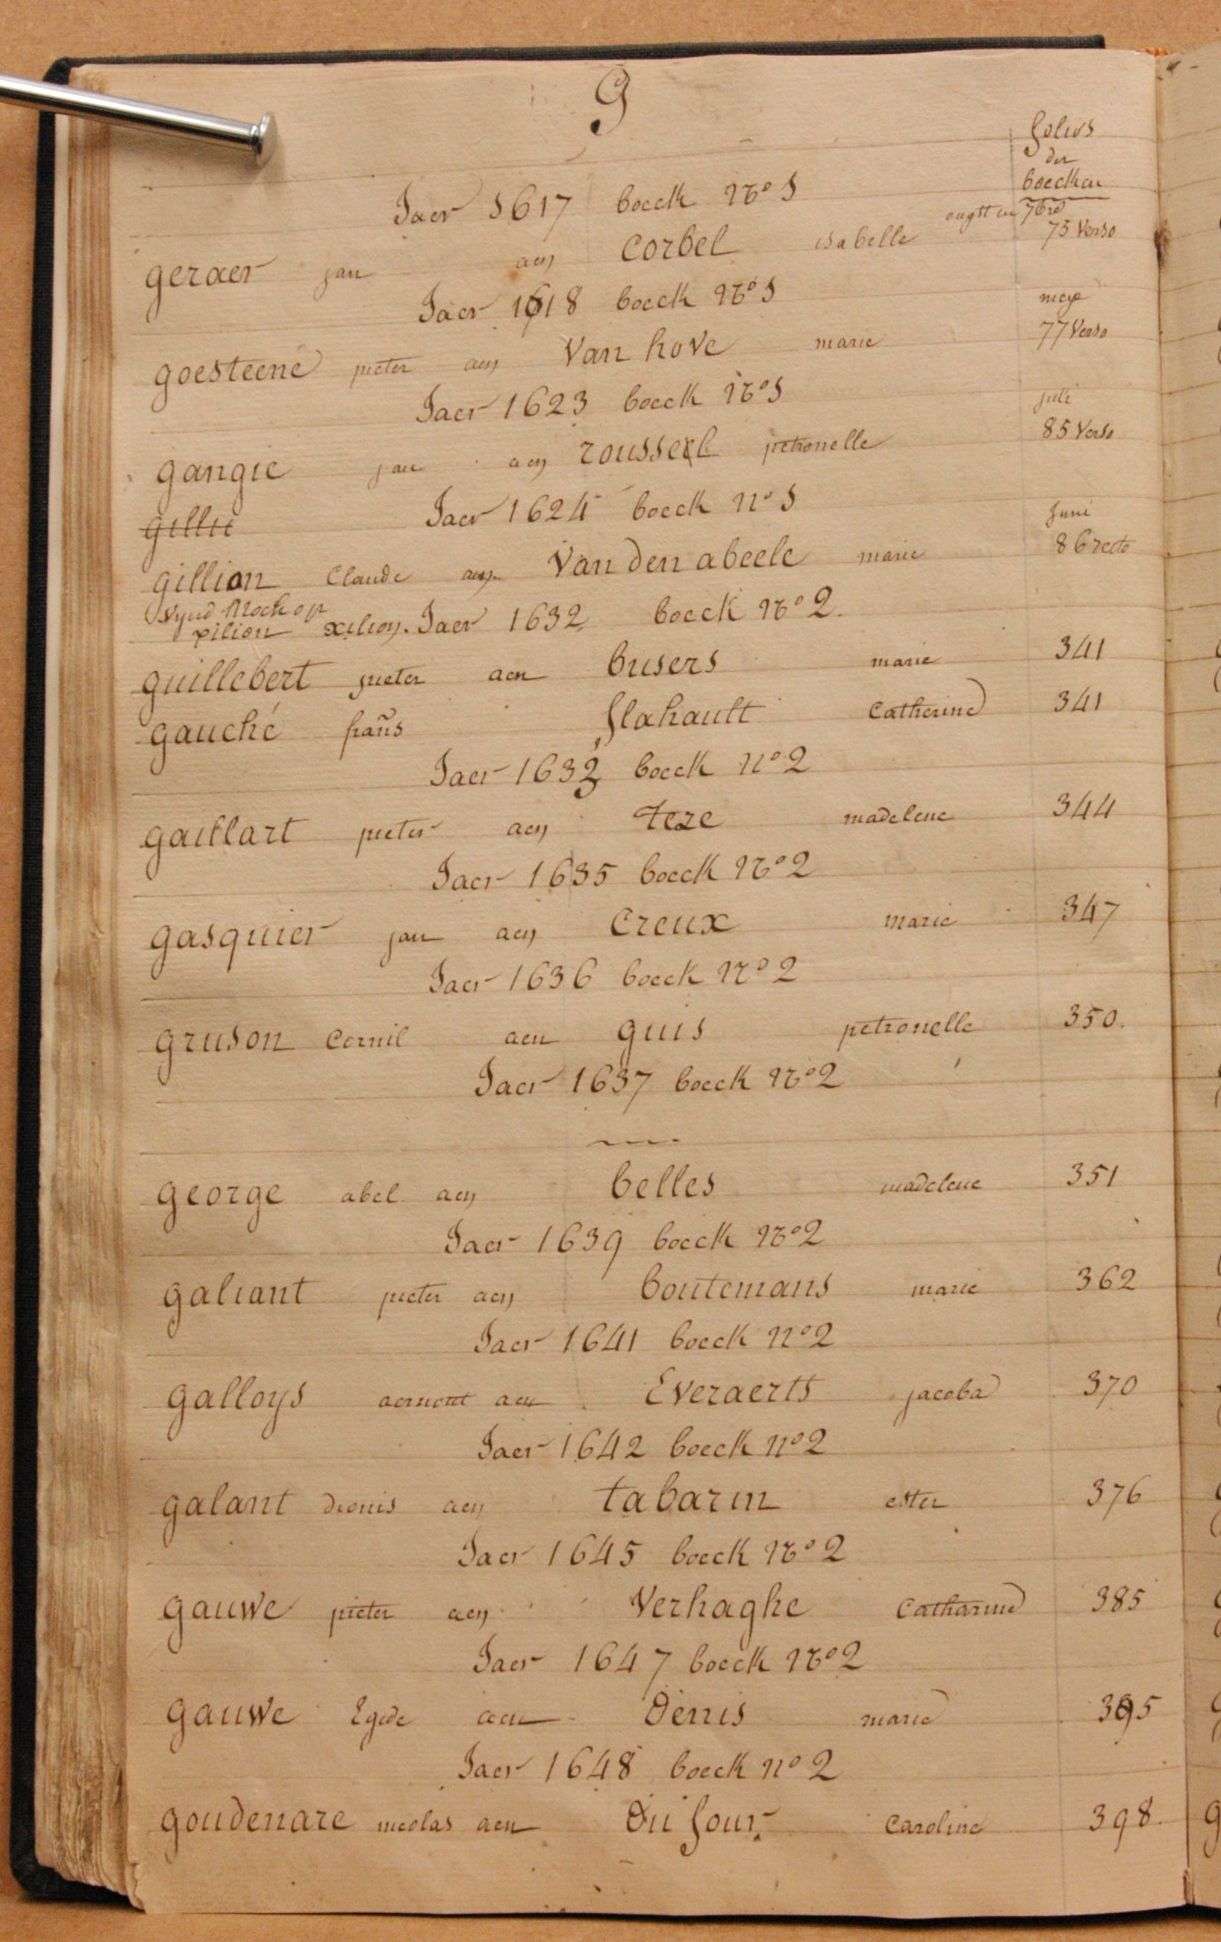 G
folios
der
boecken
Jaer 1617 boeck No 1
ougst en 76 ro
geraer jan aen Corbel isabelle 75 Verso
Jaer 1618 boeck No 1
meye
goesteene pieter aen Van hove marie 77 Verso
Jaer 1623 boeck No 1
juli
gangie jan aen roussel petronelle 85 Verso
gillii
Jaer 1624 boeck no 1
Juni
gillion Claude aen Van den abeele marie 86 recto
vynd ook op
xilion xilioy. Jaer 1632 boeck No 2.
guillebert pieter aen busers marie 341
gauché frañs flahault Catherine 341
Jaer 1633 boeck no 2
gaillart pieter aen teze madelene 344
Jaer 1635 boeck No 2
gasquier jan aen Creux marie 347
Jaer 1636 boeck No 2
gruson Cornil aen guis petronelle 350.
Jaer 1637 boeck No 2
george abel aen belles madelene 351
Jaer 1639 boeck No 2
galiant pieter aen boutemans marie 362
Jaer 1641 boeck no 2
galloys aernout aen Everaerts jacoba 370
Jaer 1642 boeck no 2
galant dionis aen tabarin ester 376
Jaer 1645 boeck No 2
gauwe pieter aen Verhaghe Catharine 385
Jaer 1647 boeck No 2
gauwe Egide aen Denis marie 395
Jaer 1648 boeck no 2
goudenare nicolas aen Du four Caroline 398.